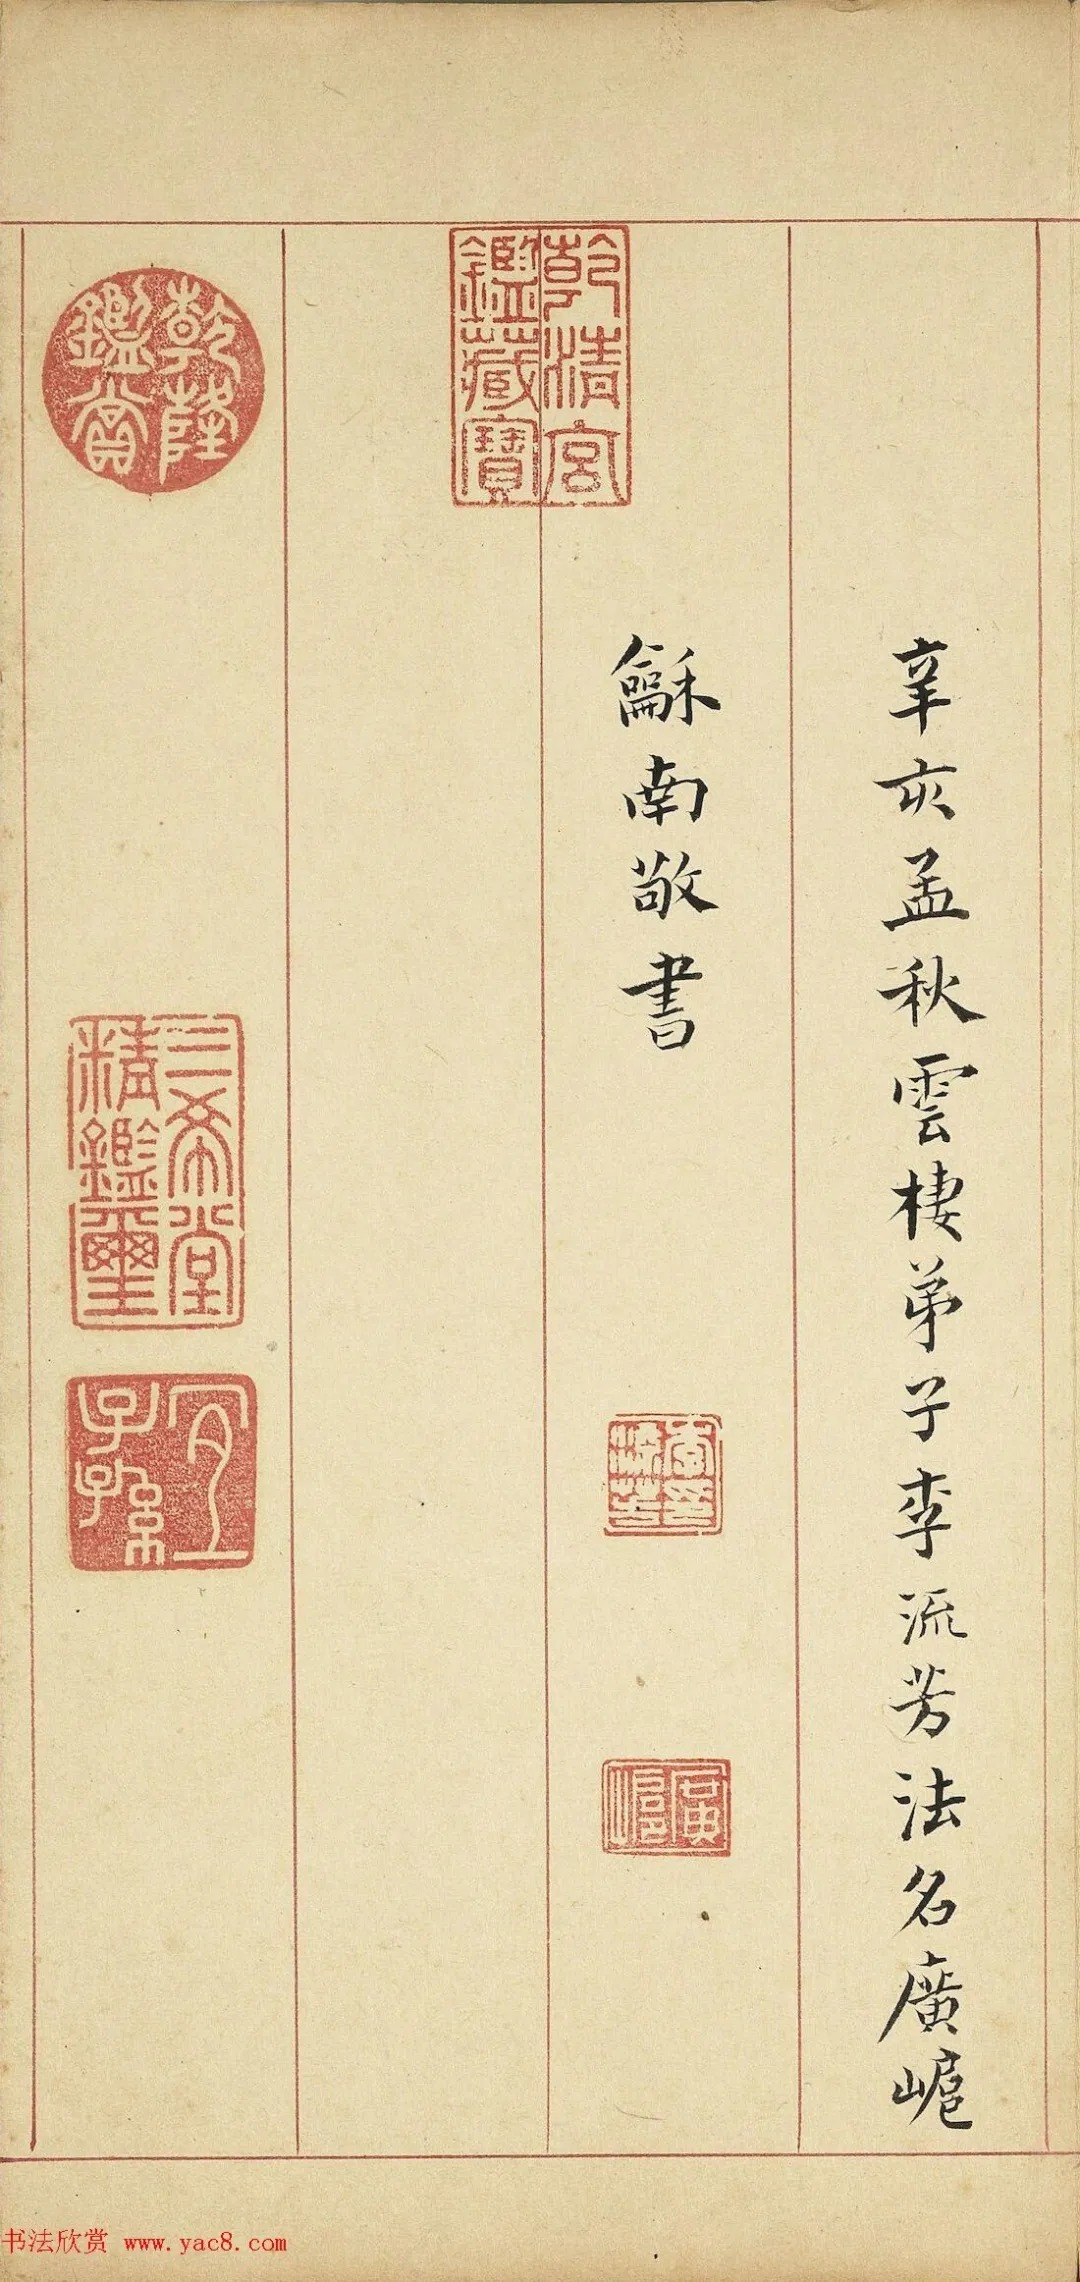 辛亥孟秋雲棲弟子李流芳法名廣岮
龢南敬書
乾清宮鑑藏寶
李流芳印
乾隆鑑賞
三希堂精鑑璽
宜子孫
书法欣赏 www.yac8.com